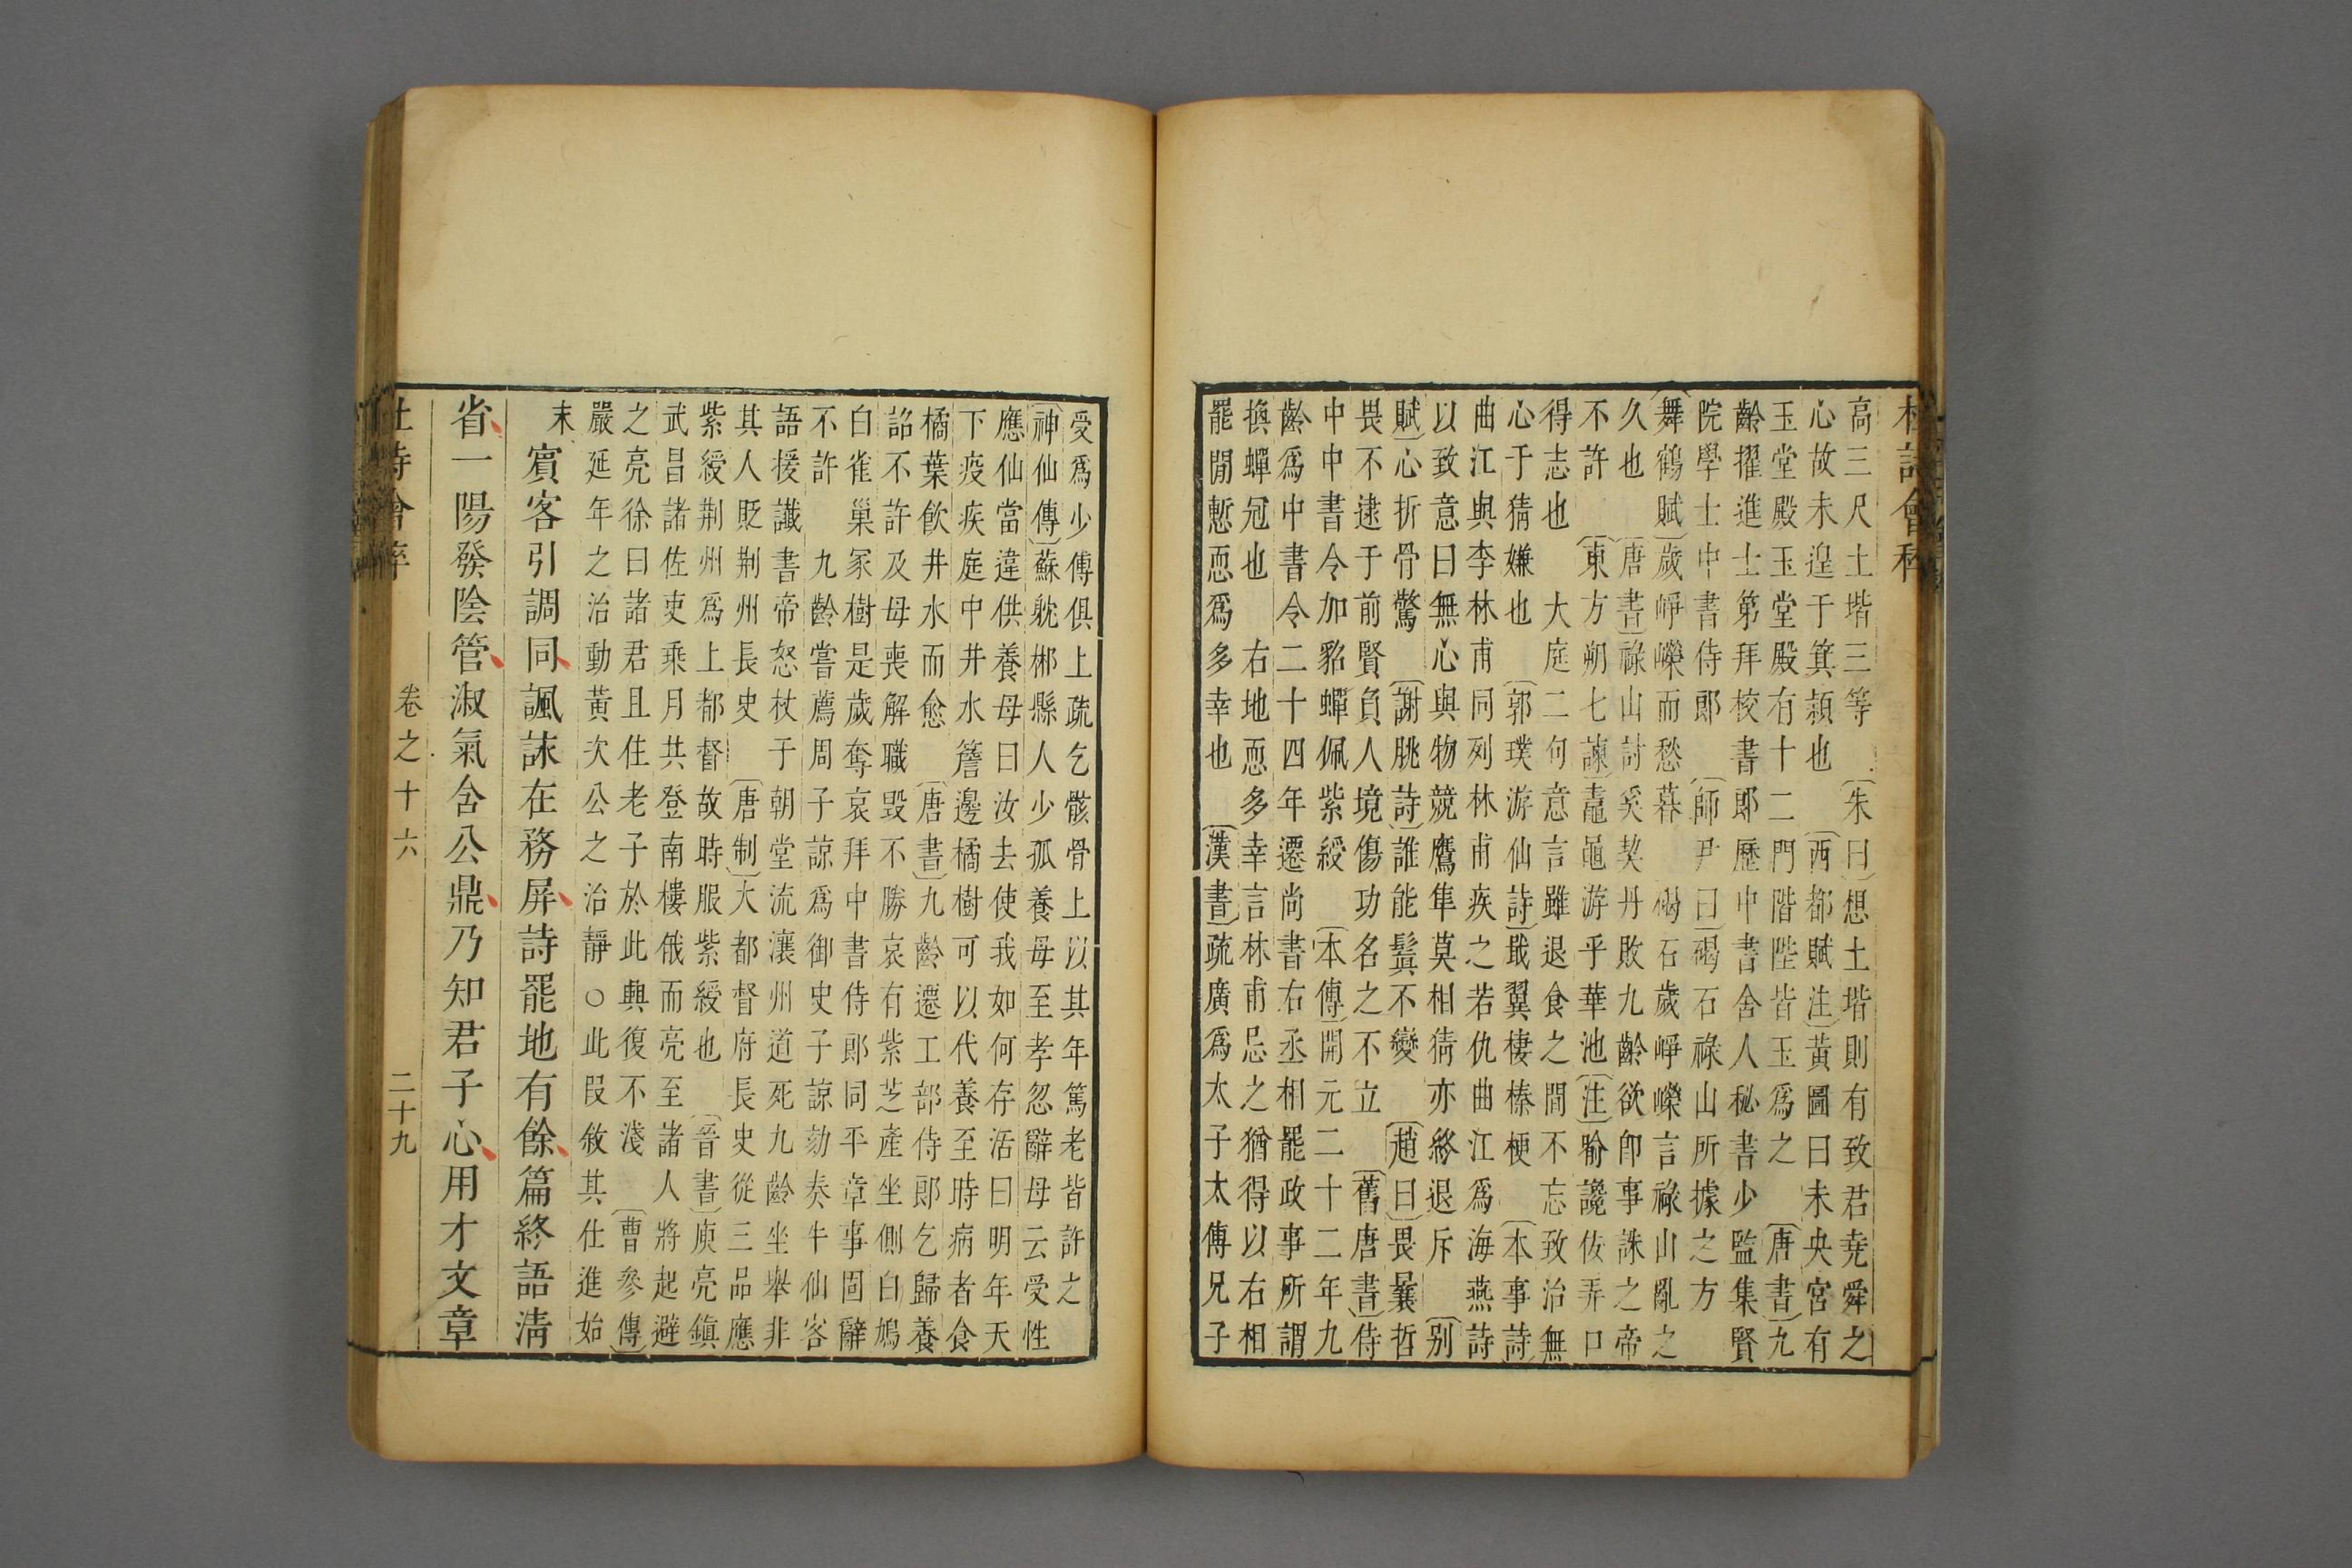 杜詩會稡
高三尺土堦三等〔朱曰〕想土堦則有致君堯舜之
心故未遑于箕頴也〔西都賦注〕黃圖曰未央宮有
玉堂殿玉堂殿有十二門階陛皆玉爲之〔唐書〕九
齡擢進士第拜校書郎歷中書舍人秘書少監集賢
院學士中書侍郎〔師尹曰〕碣石祿山所據之方
〔舞鶴賦〕歲崢嶸而愁暮碣石歲崢嶸言祿山亂之
久也〔唐書〕祿山討奚契丹敗九齡欲卽事誅之帝
不許〔東方朔七諫〕鼃黽游乎華池〔注〕喻讒佞弄口
得志也大庭二句意言雖退食之間不忘致治無
心于猜嫌也〔郭璞游仙詩〕戢翼棲榛梗〔本事詩〕
曲江與李林甫同列林甫疾之若仇曲江爲海燕詩
以致意曰無心與物競鷹隼莫相猜亦終退斥〔别
賦〕心折骨驚〔謝朓詩〕誰能鬒不變〔趙曰〕畏曩哲
畏不逮于前賢負人境傷功名之不立〔舊唐書〕侍
中中書令加貂蟬佩紫綬〔本傳〕開元二十二年九
齡爲中書令二十四年遷尚書右丞相罷政事所謂
換蟬冠也右地恧多幸言林甫忌之猶得以右相
罷閒慙恧爲多幸也〔漢書〕疏廣爲太子太傅兄子
受爲少傅俱上疏乞骸骨上以其年篤老皆許之
〔神仙傳〕蘇躭郴縣人少孤養母至孝忽辭母云受性
應仙當違供養母曰汝去使我如何存活曰明年天
下疫疾庭中井水簷邊橘樹可以代養至時病者食
橘葉飲井水而愈〔唐書〕九齡遷工部侍郎乞歸養
詔不許及母喪解職毀不勝哀有紫芝產坐側白鳩
白雀巢冢樹是歲奪哀拜中書侍郎同平章事固辭
不許九齡嘗薦周子諒爲御史子諒劾奏牛仙客
語援讖書帝怒杖于朝堂流瀼州道死九齡坐舉非
其人貶荆州長史〔唐制〕大都督府長史從三品應
紫綬荆州爲上都督故時服紫綬也〔晉書〕庾亮鎭
武昌諸佐吏乘月共登南樓俄而亮至諸人將起避
之亮徐曰諸君且住老子於此興復不淺〔曹參傳〕
嚴延年之治動黃次公之治靜○此叚敘其仕進始
末
賓客引調同諷誦在務屏詩罷地有餘篇終語淸
省一陽發陰管淑氣含公鼎乃知君子心用才文章
杜詩會稡
卷之十六
二十九